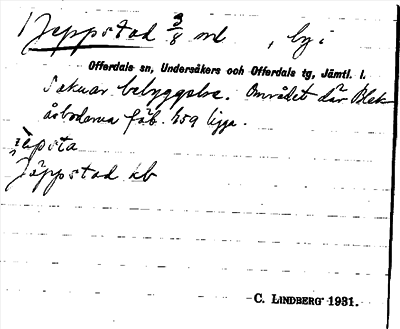 Jeppstad 3/8 ml , by i
Offerdals sn, Undersåkers och Offerdals tg, Jämtl. l.
Saknar bebyggelse. Området där Blek-
åsbodarna fäb. 459 ligga.
jäpsta
Jäppstad ib
- C. LINDBERG 1931.